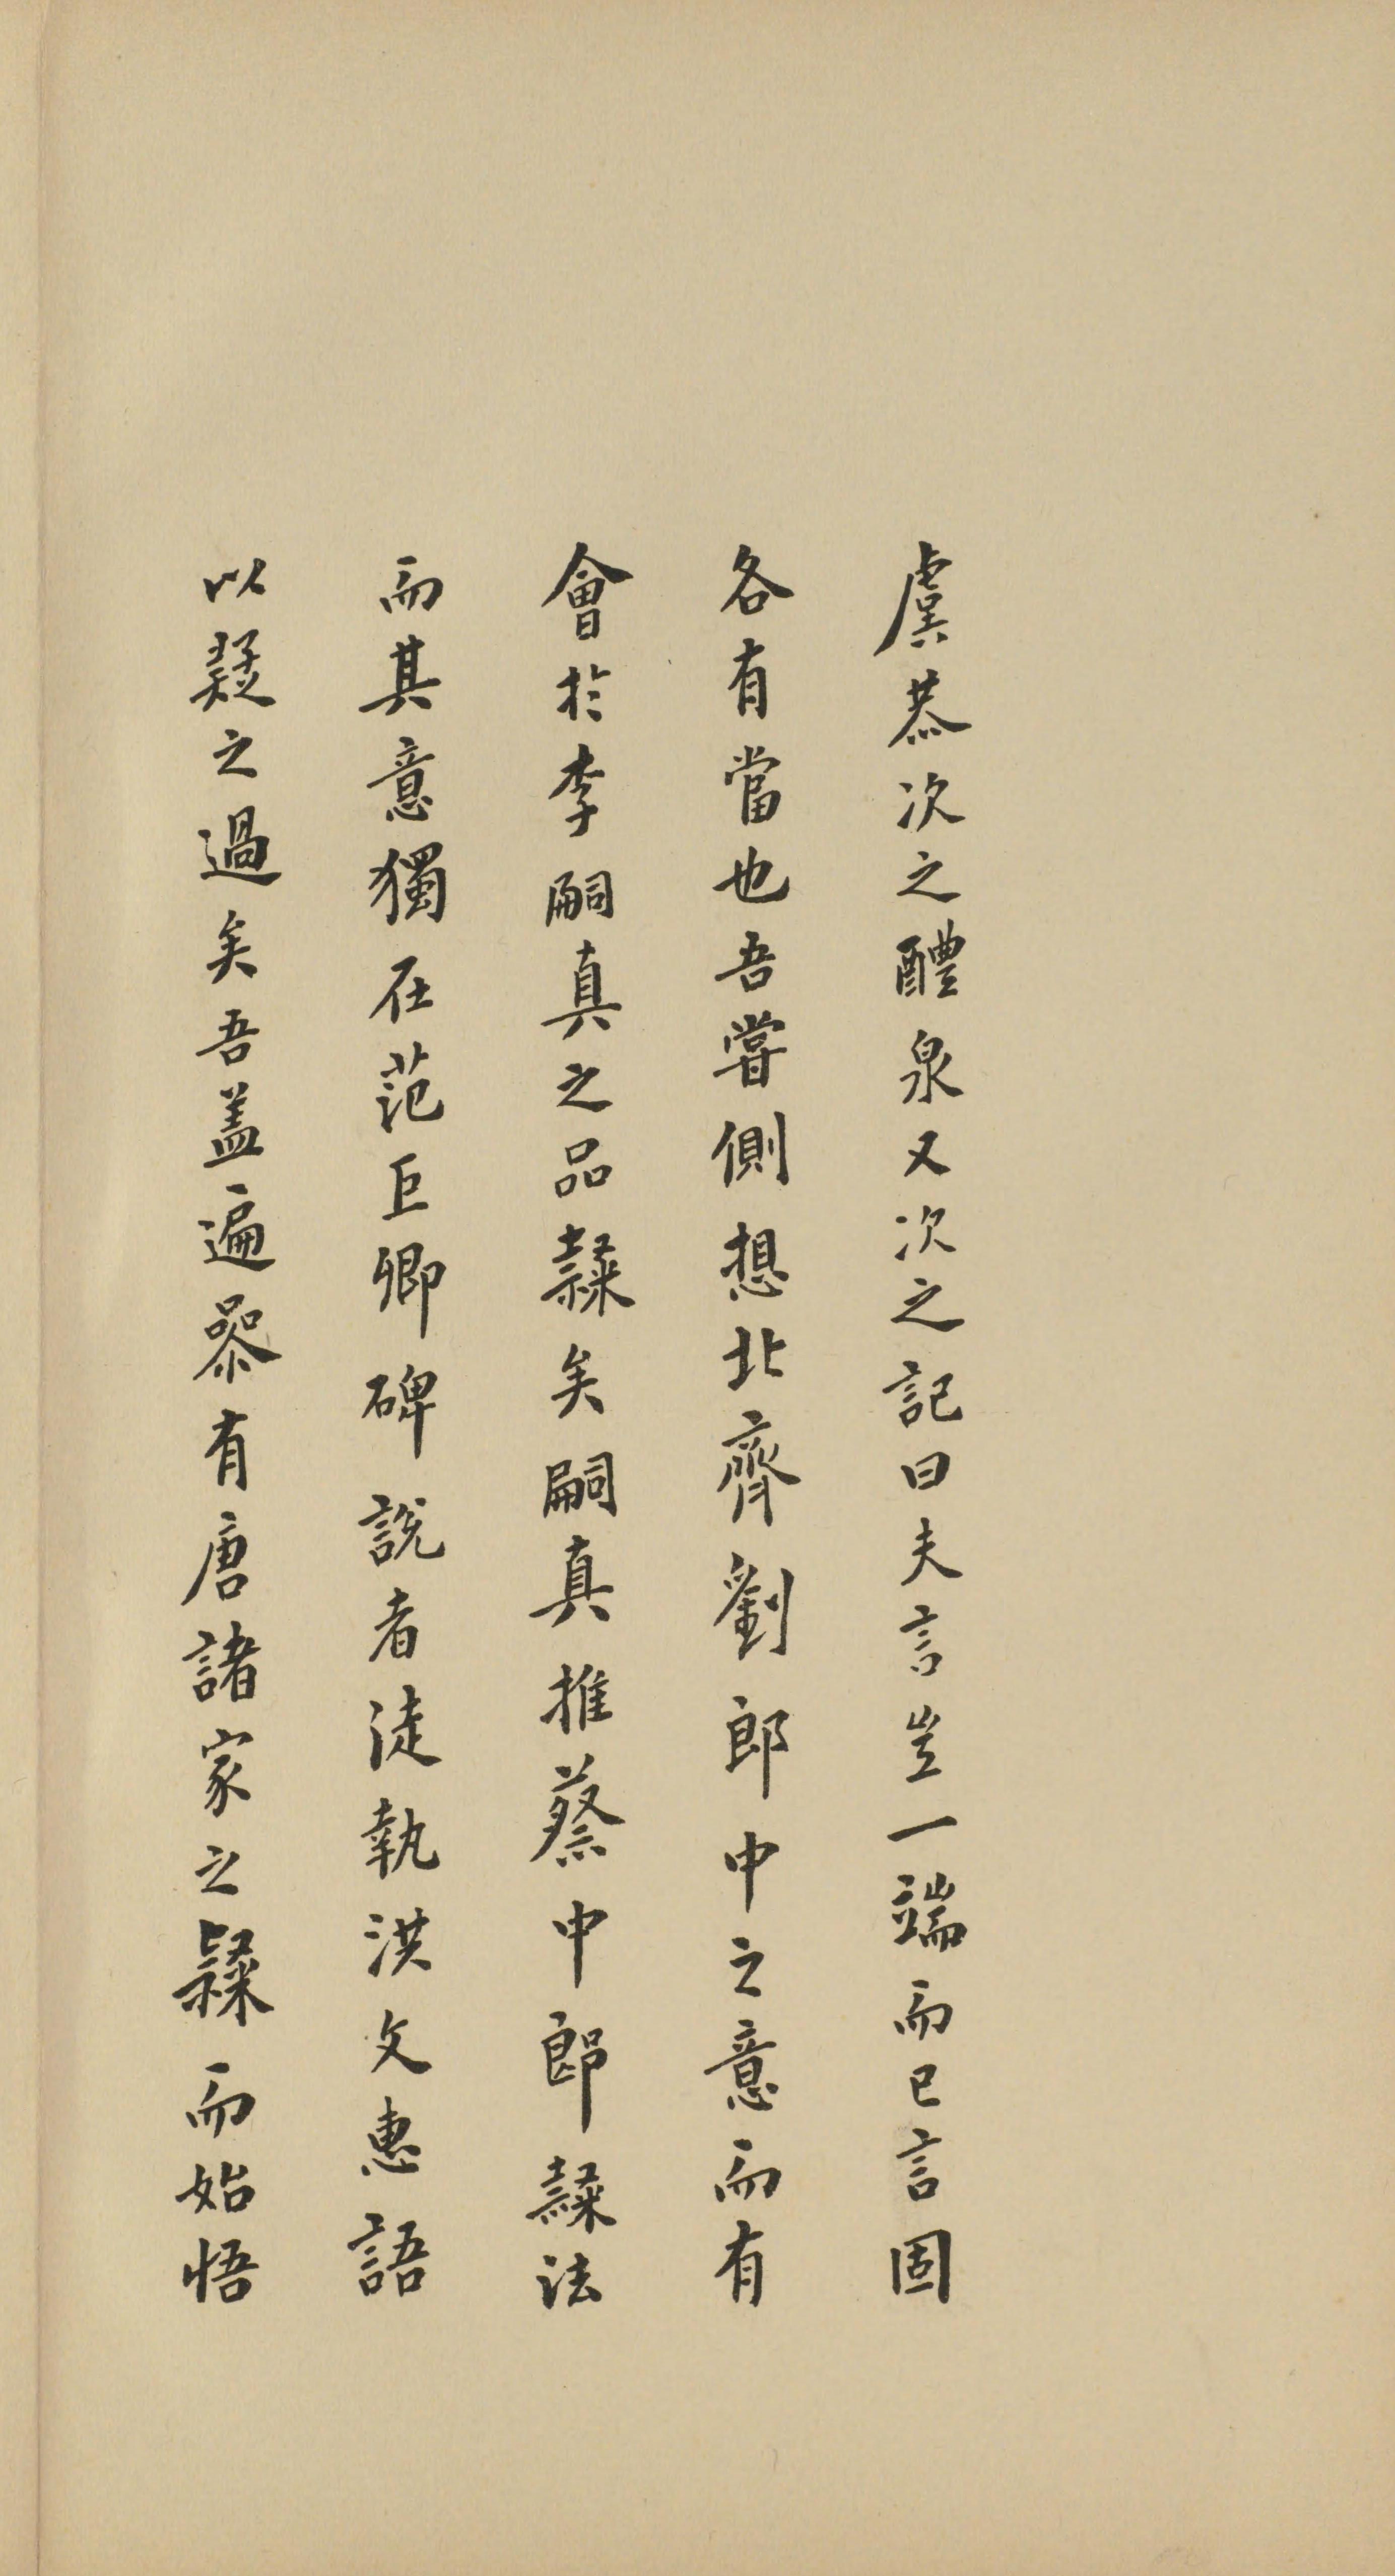 虞恭次之醴泉又次之記曰夫言豈一端而已言固
各有當也吾嘗側想北齊劉郎中之意而有
會於李嗣真之品隸矣嗣真推蔡中郎隸法
而其意獨在范巨卿碑說者徒執洪文惠語
以疑之過矣吾盖遍叅有唐諸家之隸而始悟